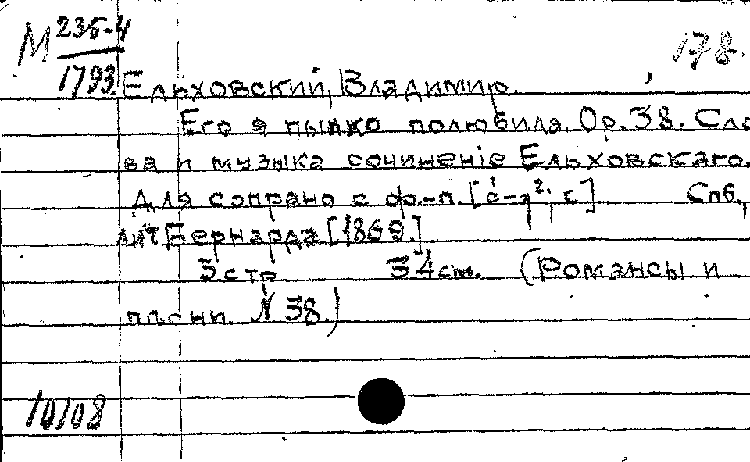 М 235-4
1793
178.
Ельховский, Владимир.
Его я пылко полюбила. Op. 38. Сло
ва и музыка сочинение Ельховскаго.
Для сопрано с ф.-п. [c¹-g², c] Спб.,
лит Бернарда [1869.]
5 стр 34 см. (Романсы и
песни N 38.)
10108